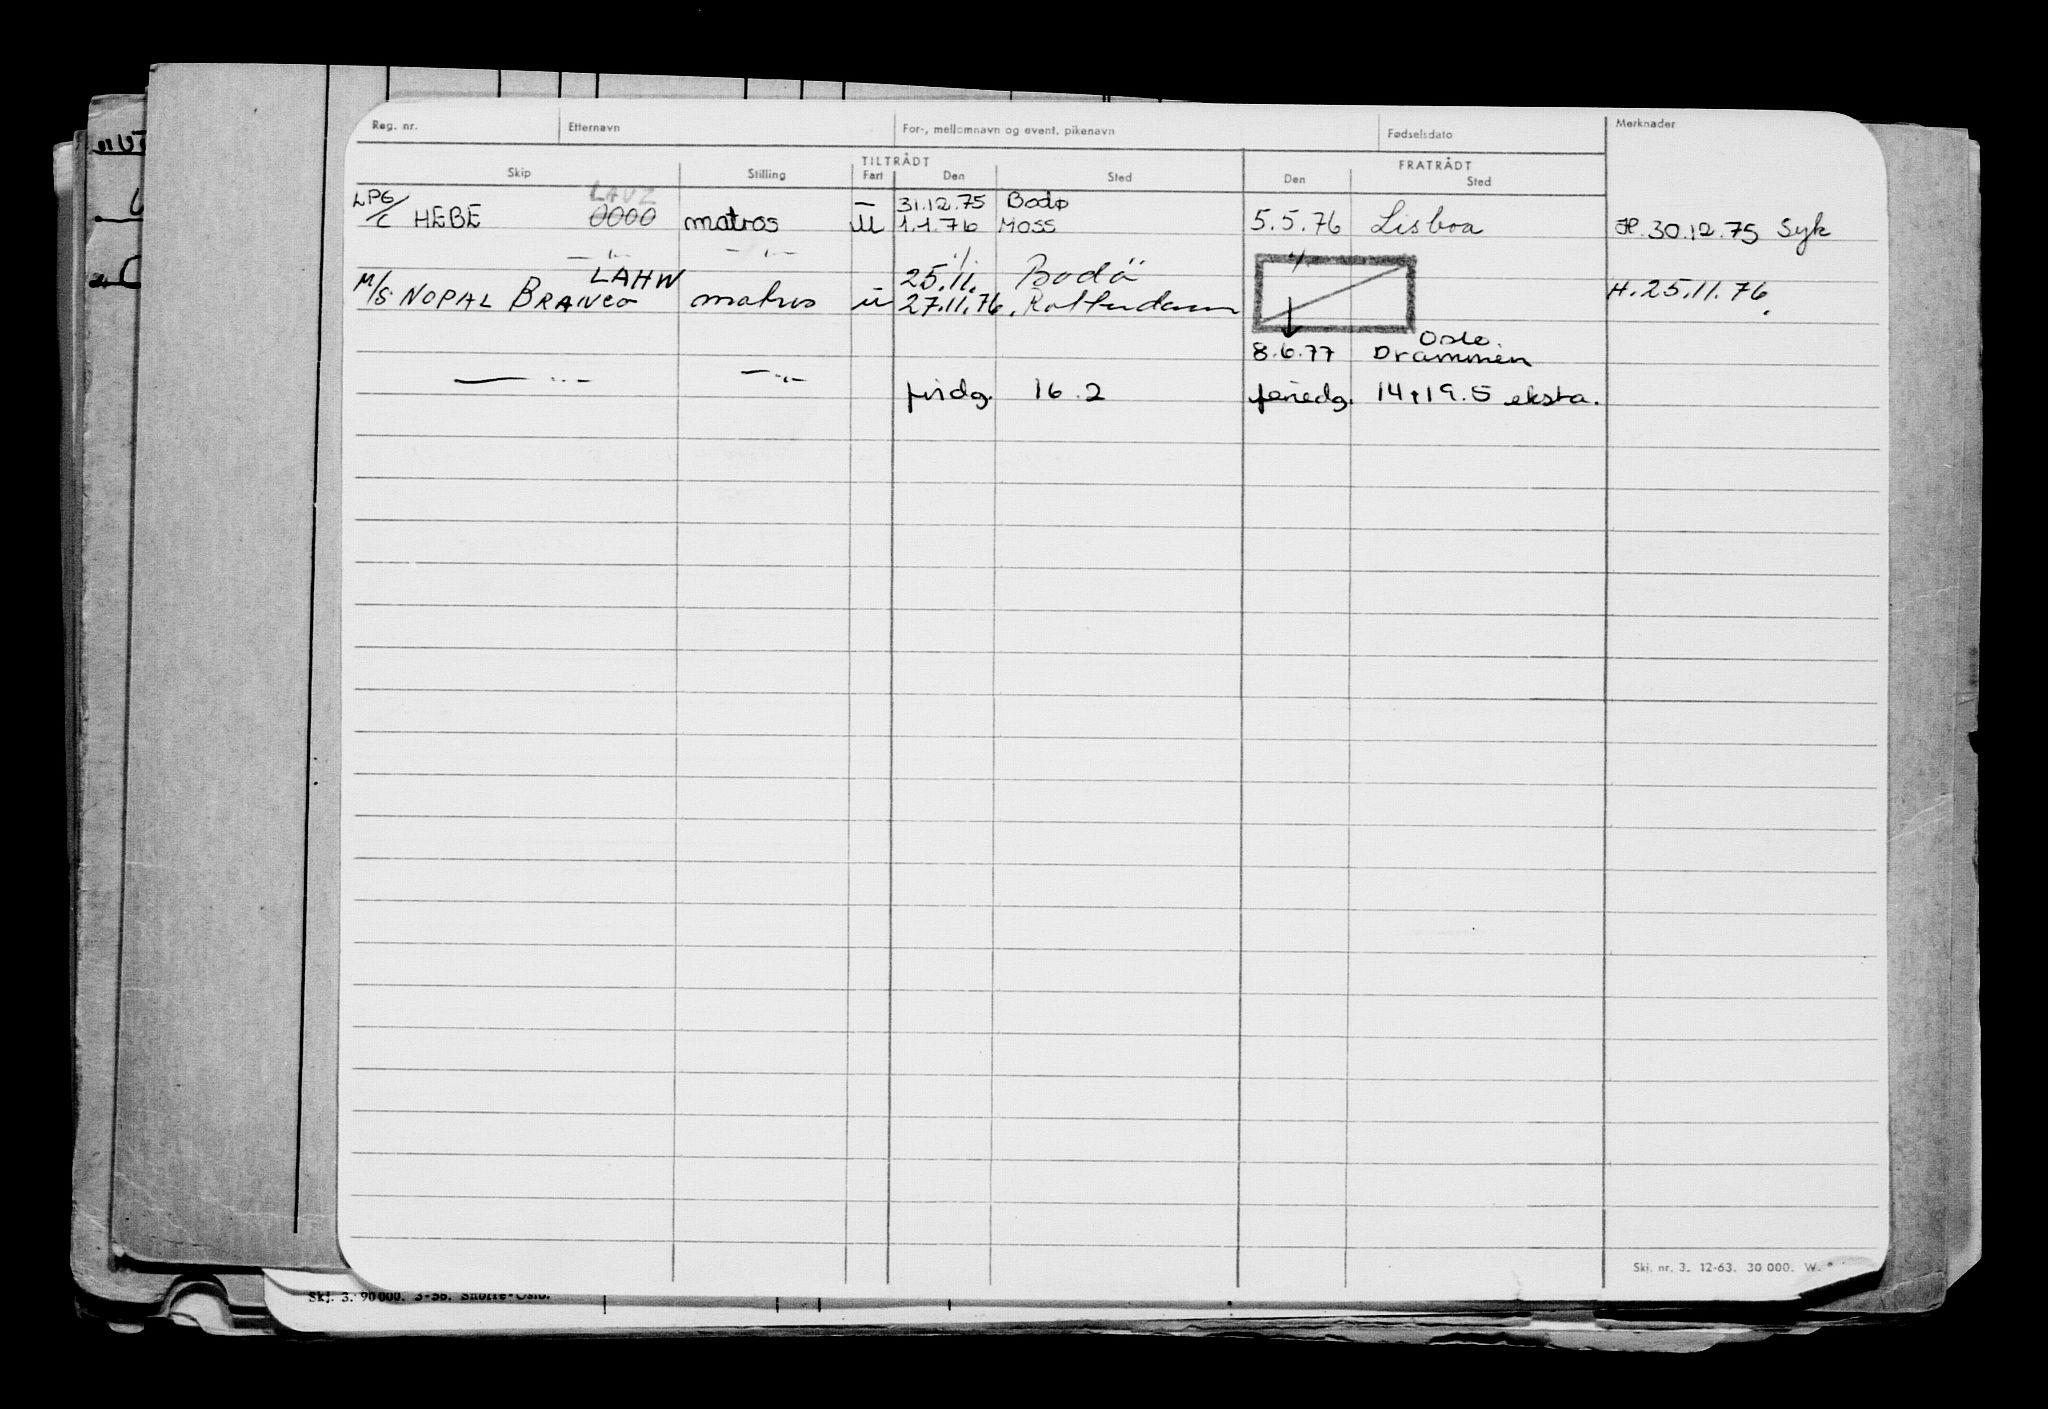 Reg. nr. Etternavn For-, mellomnavn og event. pikenavn Fødselsdato Merknader
TILTRÅDT FRATRÅDT
Skip Stilling Fart Den Sted Den Sted
LPG LAVZ — 31.12.75 Bodø
/c HEBE 0000 matros U 1.1.76 Moss 5.5.76 Lisboa H. 30.12.75 Syk
— " — — " — ./. ./.
LAHW 25.11. Bodö
M/S NOPAL BRANCO matros u 27.11.76. Rotterdam H. 25.11.76.
Oslo.
8.6.77 Drammen
— " — — " — firdg. 16.2 feriedg. 14+19.5 eksta.
Skj. nr. 3. 12-63. 30 000. W.
Skj. 3. 90 000. 3-56. Snorre-Oslo.